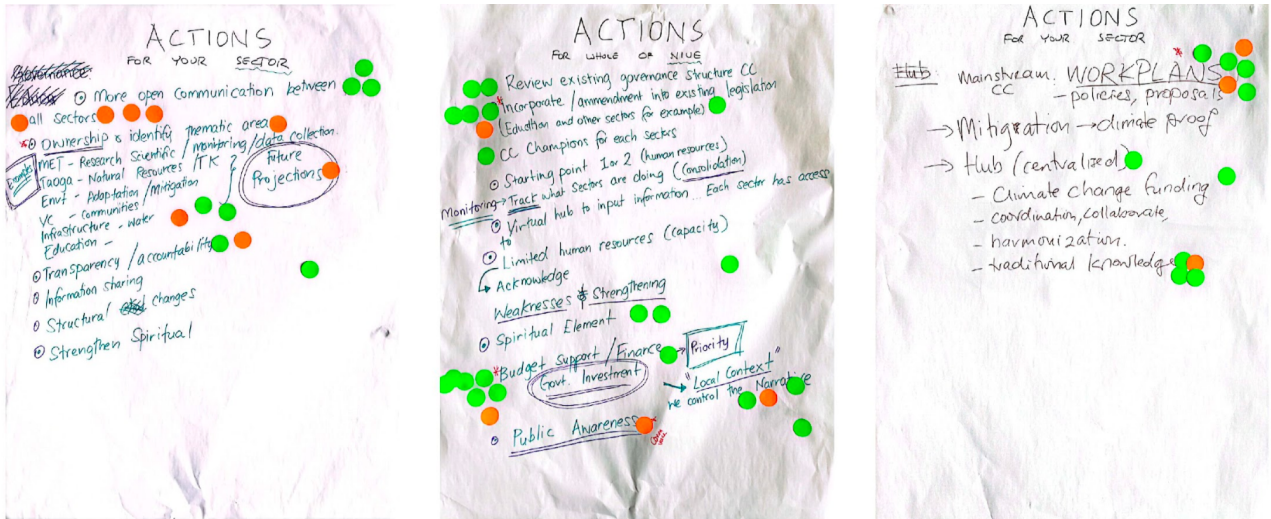 ACTIONS
FOR YOUR SECTOR
More open communication between
all sectors
*Ownership & identify thematic area
MET - Research Scientific / monitoring / data collection.
Example
Taoga - Natural Resources /TK ?
Future Projections
Envt - Adaptation / Mitigation
VC - Communities /
Infrastructure - water
Education -
Transparency / accountability
Information sharing
Structural changes
Strengthen Spiritual
ACTIONS
FOR WHOLE OF NIUE
Review existing governance structure CC
*Incorporate / ammendment into existing legislation
(Education and other sectors for example)
CC Champions for each sectors
Starting point 1 or 2 (human resources)
Monitoring → Track what sectors are doing (consolidation)
Virtual hub to input information ... Each sector has access
to
Limited human resources (capacity)
Acknowledge
Weaknesses & Strengthening
Spiritual Element
*Budget Support / Finance → Priority
Govt. Investment → "Local Context"
we control the Narrative
Public Awareness
ACTIONS
FOR YOUR SECTOR
*
Hub Mainstream. WORKPLANS
CC - policies, proposals
→ Mitigration → climate proof
→ Hub (centralized)
- Climate change funding
- coordination, collaborate,
- harmonization.
- traditional knowledge